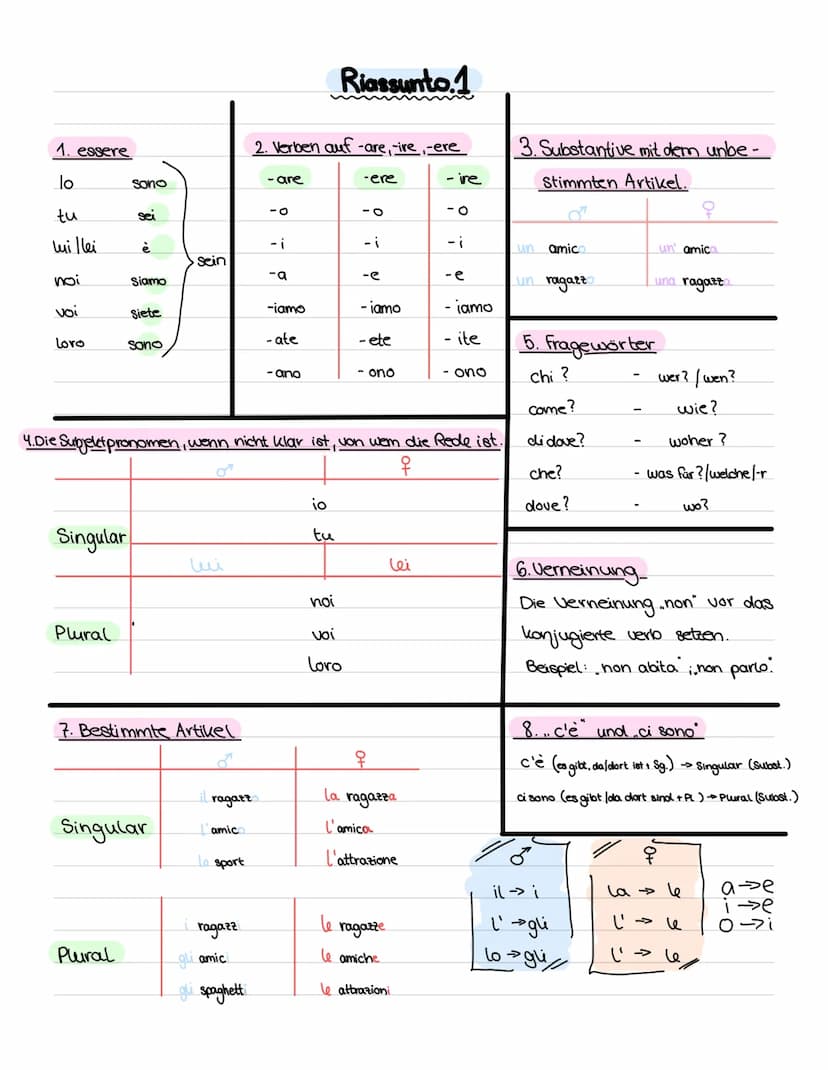 Riassunto.1
1. essere
Io sono
tu sei
lui/lei è
noi siamo
voi siete
loro sono
sein
2. Verben auf -are,-ire,-ere
-are -ere -ire
-o -o -o
-i -i -i
-a -e -e
-iamo -iamo -iamo
-ate -ete -ite
-ano -ono -ono
3. Substantive mit dem unbe-
stimmten Artikel.
♂ ♀
un amico un' amica
un ragazzo una ragazza
4.Die Subjektpronomen, wenn nicht klar ist, von wem die Rede ist.
♂ ♀
io
Singular tu
lui lei
noi
Plural voi
loro
5. Fragewörter
chi? - wer? / wen?
come? - wie?
di dove? - woher?
che? - was für?/welche/-r
dove? - wo?
6. Verneinung
Die Verneinung „non" vor das
konjugierte verb setzen.
Beispiel: „non abita"; „non parlo".
7. Bestimmte Artikel
♂ ♀
il ragazzo la ragazza
Singular l'amico l'amica
lo sport l'attrazione
i ragazzi le ragazze
Plural gli amici le amiche
gli spaghetti le attrazioni
8. „c'è" und „ci sono"
c'è (es gibt, da/dort ist + Sg.) → Singular (Subst.)
ci sono (es gibt / da dort sind + Pl.) → Plural (Subst.)
♂
il → i
l' → gli
lo → gli
♀
la → le
l' → le
l' → le
a → e
i → e
o → i